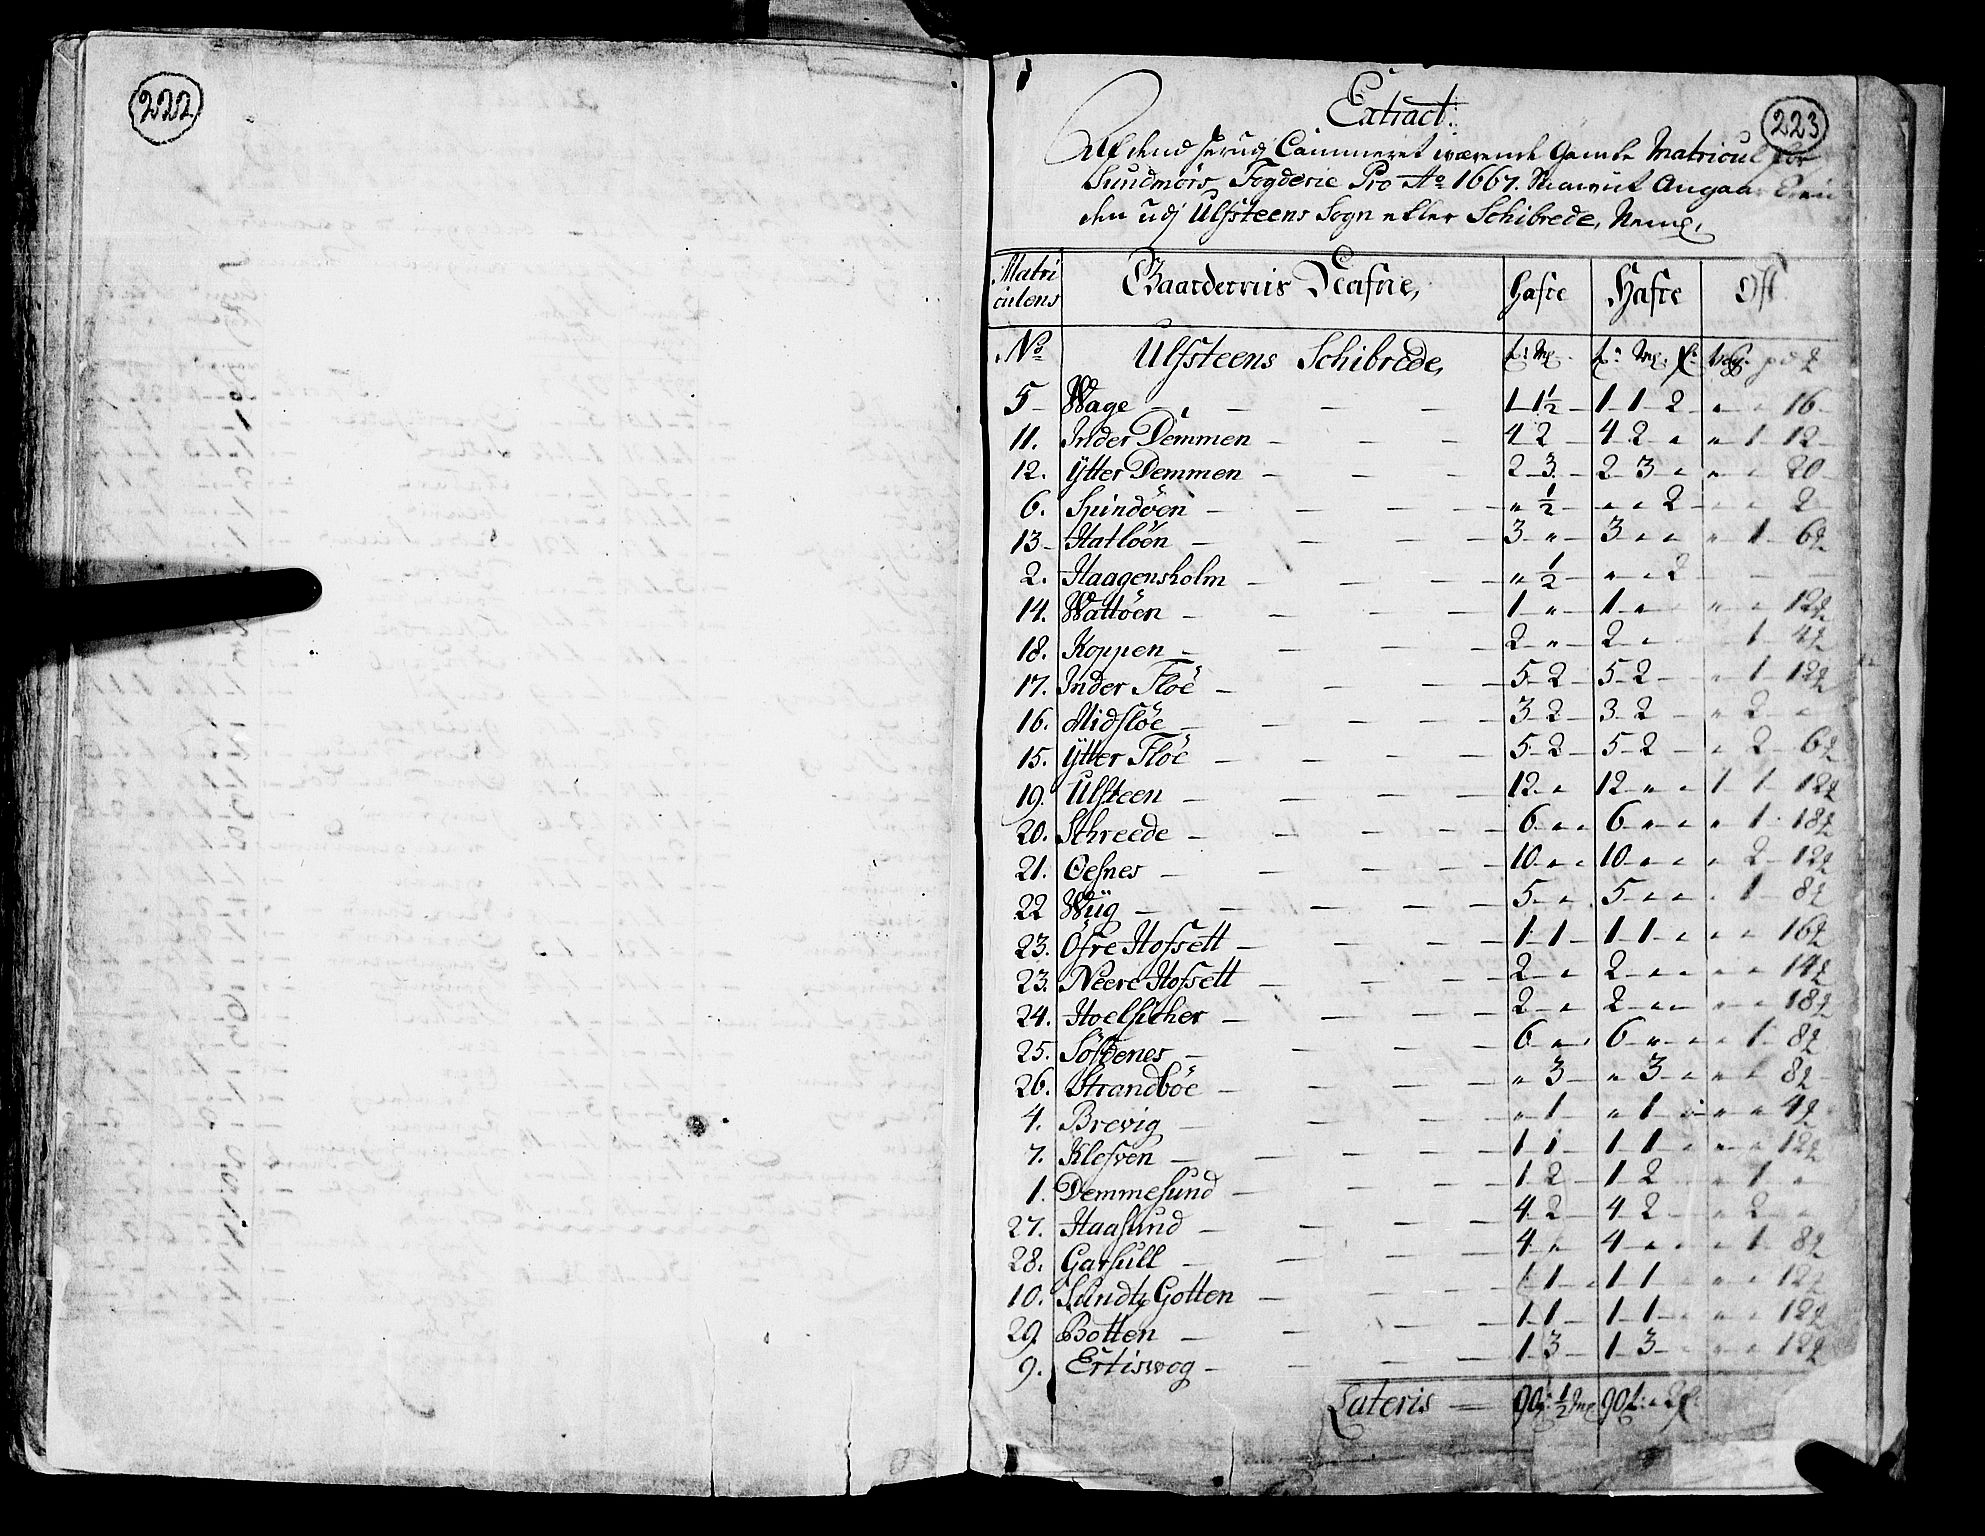 222
223
Extract:
Af dend Cammeret værende Gamle Matricul for
Sundmörs Fogderie Pro Ao 1667. Angaar
den udj Ulfsteens Sogn eller Schibrede, Neml.
Matri Gaardernis Nafne, Hafte Hafte Ost
culens
No Ulfsteens Schibrede, L: Mg L: Mg
5 Wage 1 1½ 1 1 2 " " 16
11. Inder Demmen 4 2 4 2 " " 1 12
12. Ytter Demmen 2 3 2 3 " " " 20
6. Spindöen " ½ " " 2 " " 2
13 Hatlöen 3 " 3 " " " 1 6
2. Haagensholm " ½ " " 2
14. Wattöen 1 " 1 " " " 12
18. Koppen 2 " 2 " 1 4
17. Inder Flöe 5 2 5 2 " 1 12
16. Midflöe 3 2 3 2 " 2 "
15. Ytter Flöe 5 2 5 2 " 2 6
19. Ulfsteen 12 " 12 " " 1 1 12
20. Schreede 6 " " 6 " " " 1 18
21. Oesnes 10 " " 10 " " " 2 12
22 Wüg 5 " " 5 " " " 1 8
23. Öfre Hofsett 1 1 1 1 " " " 16
23. Neere Hofsett 2 " 2 " " " " 14
24. Hoelsicher 2 " 2 " " " " 18
25. 6 " 6 " " " 1 8
26. Strandböe " 3 " 3 " " " 8
4. Brevig " 1 " 1 " " " 4
7. Klefven 1 1 1 1 " " " 12
1. Demmesund 1 2 1 2 " 1 "
27. Haasund 4 2 4 2 " 2 "
28. Garsull 4 " 4 " " " 1 8
10. Sundtz Gotten 1 1 1 1 " " 12
29 Botten 1 1 1 1 " " 12
9. Ertiswog 1 3 1 3 " " 12
Lateris 90 ½ 90 2